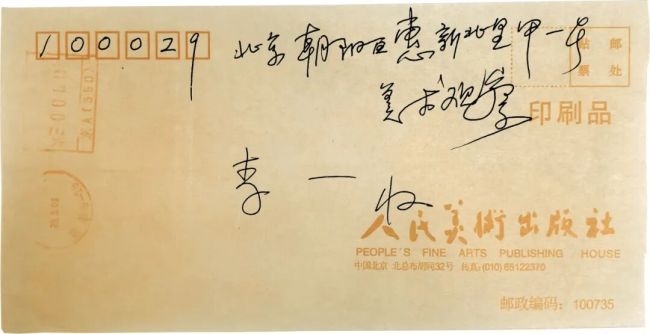 100029
北京朝阳区惠新北里甲一号
美术观察
李一收
贴邮票处
印刷品
人民美術出版社
PEOPLE'S FINE ARTS PUBLISHING HOUSE
中国北京 北总布胡同32号 传真:(010) 65122370
邮政编码：100735